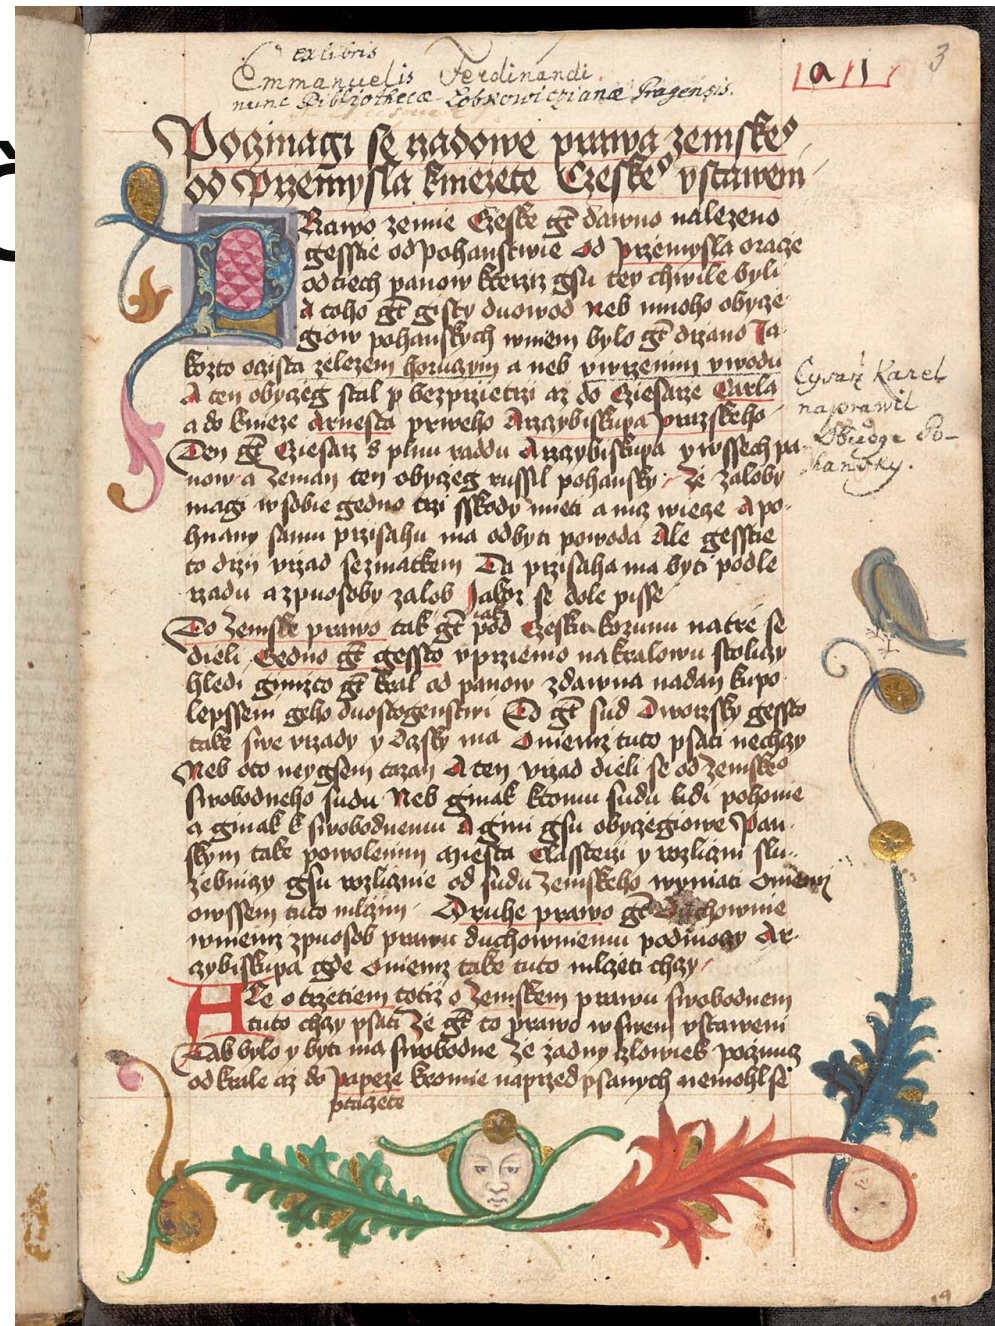 ex libris
Emmanuelis Ferdinandi.
nunc Bibliothecæ Lobkowiczianæ Pragensis.
a 1
3
Poczinagi se rzadowe prawa zemskeº
od Przemysla kniezete Czeskeº vstaweni
PRawo zemie Czeske gt dawno nalezeno
gesstie od pohanstwie od przemysla oracze
od tiech panow kterziz gsu tey chwile byli
A toho gt gisty duowod neb mnoho obycze-
giow pohanskych wniem bylo gt drzano Ja-
kozto ocista zelezem horuczym a neb vwrzenim vwodu
A ten obyczeg stal p bezprzietrzi az do Cziesarze Carla
a do knieze Arnesta prweho Arczybiskupa prazskeho
Ten gt Cziesarz s plnu raddu Arczybiskupa y wssech pa-
now a zeman ten obyczeg russil pohansky Ze zaloby
magi w sobie gedno trzi sskody mieti a niz wiecze A po-
hnany samu przisahu ma odbyti powoda Ale gesstie
to drzii vrzad sezmatkem Ta przisaha ma byti podle
rzadu a zpuosoby zalob Jakoz se dole pisse
Cysarz Karel
naprawil
Obiczge Po-
hansky.
To Zemske prawo tak gt pod Czesku korunu na tre se
dieli Gedno gt gessto vprziemo na kralowu stoliczy
hledi gimzto gt kral od panow zdawna nadan kupo
lepssem geho duostogenstwi To gt sud Dworzsky gessto
take swe vrzady y Dczky ma Oniemz tuto psati nechczy
Neb oto neygsem tazan A ten vrzad dieli se od zemskeº
swobodneho sudu Neb ginak ktomu sudu lidi pohonie
a ginak k swobodnemu A gini gsu obyczegiowe Pan-
skym take powolenim miesta Classterzi y rozlicni slu-
zebniczy gsu rozlicznie od sudu zemskeho wyniati Oniemz
owssem tuto mlczim Druhe prawo gt Duchownie
wniemz zpuosob prawu duchowniemu podmoczy Ar-
czybiskupa gde Oniemz take tuto mlczeti chczy
ALe o trzetiem totiz o Zemskem prawu swobodnem
tuto chczy psati Ze gt to prawo w swem vstaweni
Tak bylo y byti ma swobodne Ze zadny czlowiek poczinaz
od krale az do papeze kromie naprzed psanych nemohl se